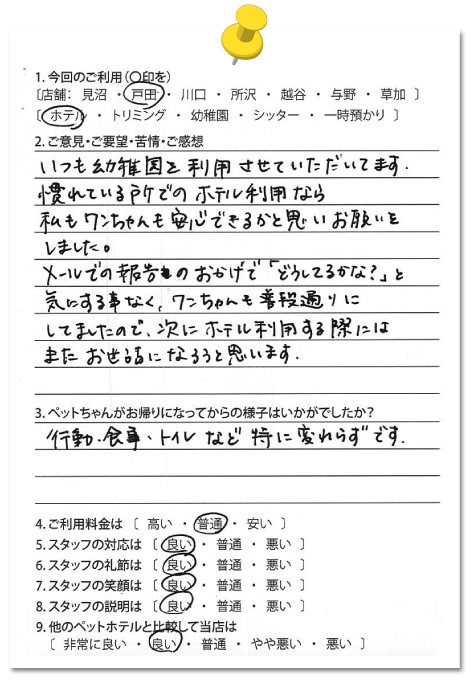 1. 今回のご利用(〇印を)
〔店舗: 見沼 ・ 戸田 ・ 川口 ・ 所沢 ・ 越谷 ・ 与野 ・ 草加 〕
〔 ホテル ・ トリミング ・ 幼稚園 ・ シッター ・ 一時預かり 〕
2. ご意見・ご要望・苦情・ご感想
いつも幼稚園を利用させていただいてます.
慣れている所でのホテル利用なら
私もワンちゃんも安心できるかと思いお願いを
しました。
メールでの報告のおかげで「どうしてるかな?」と
気にする事なく、ワンちゃんも普段通りに
してましたので、次にホテル利用する際には
またお世話になろうと思います.
3. ペットちゃんがお帰りになってからの様子はいかがでしたか?
行動・食事・トイレなど特に変わらずです.
4. ご利用料金は 〔 高い ・ 普通 ・ 安い 〕
5. スタッフの対応は 〔 良い ・ 普通 ・ 悪い 〕
6. スタッフの礼節は 〔 良い ・ 普通 ・ 悪い 〕
7. スタッフの笑顔は 〔 良い ・ 普通 ・ 悪い 〕
8. スタッフの説明は 〔 良い ・ 普通 ・ 悪い 〕
9. 他のペットホテルと比較して当店は
〔 非常に良い ・ 良い ・ 普通 ・ やや悪い ・ 悪い 〕